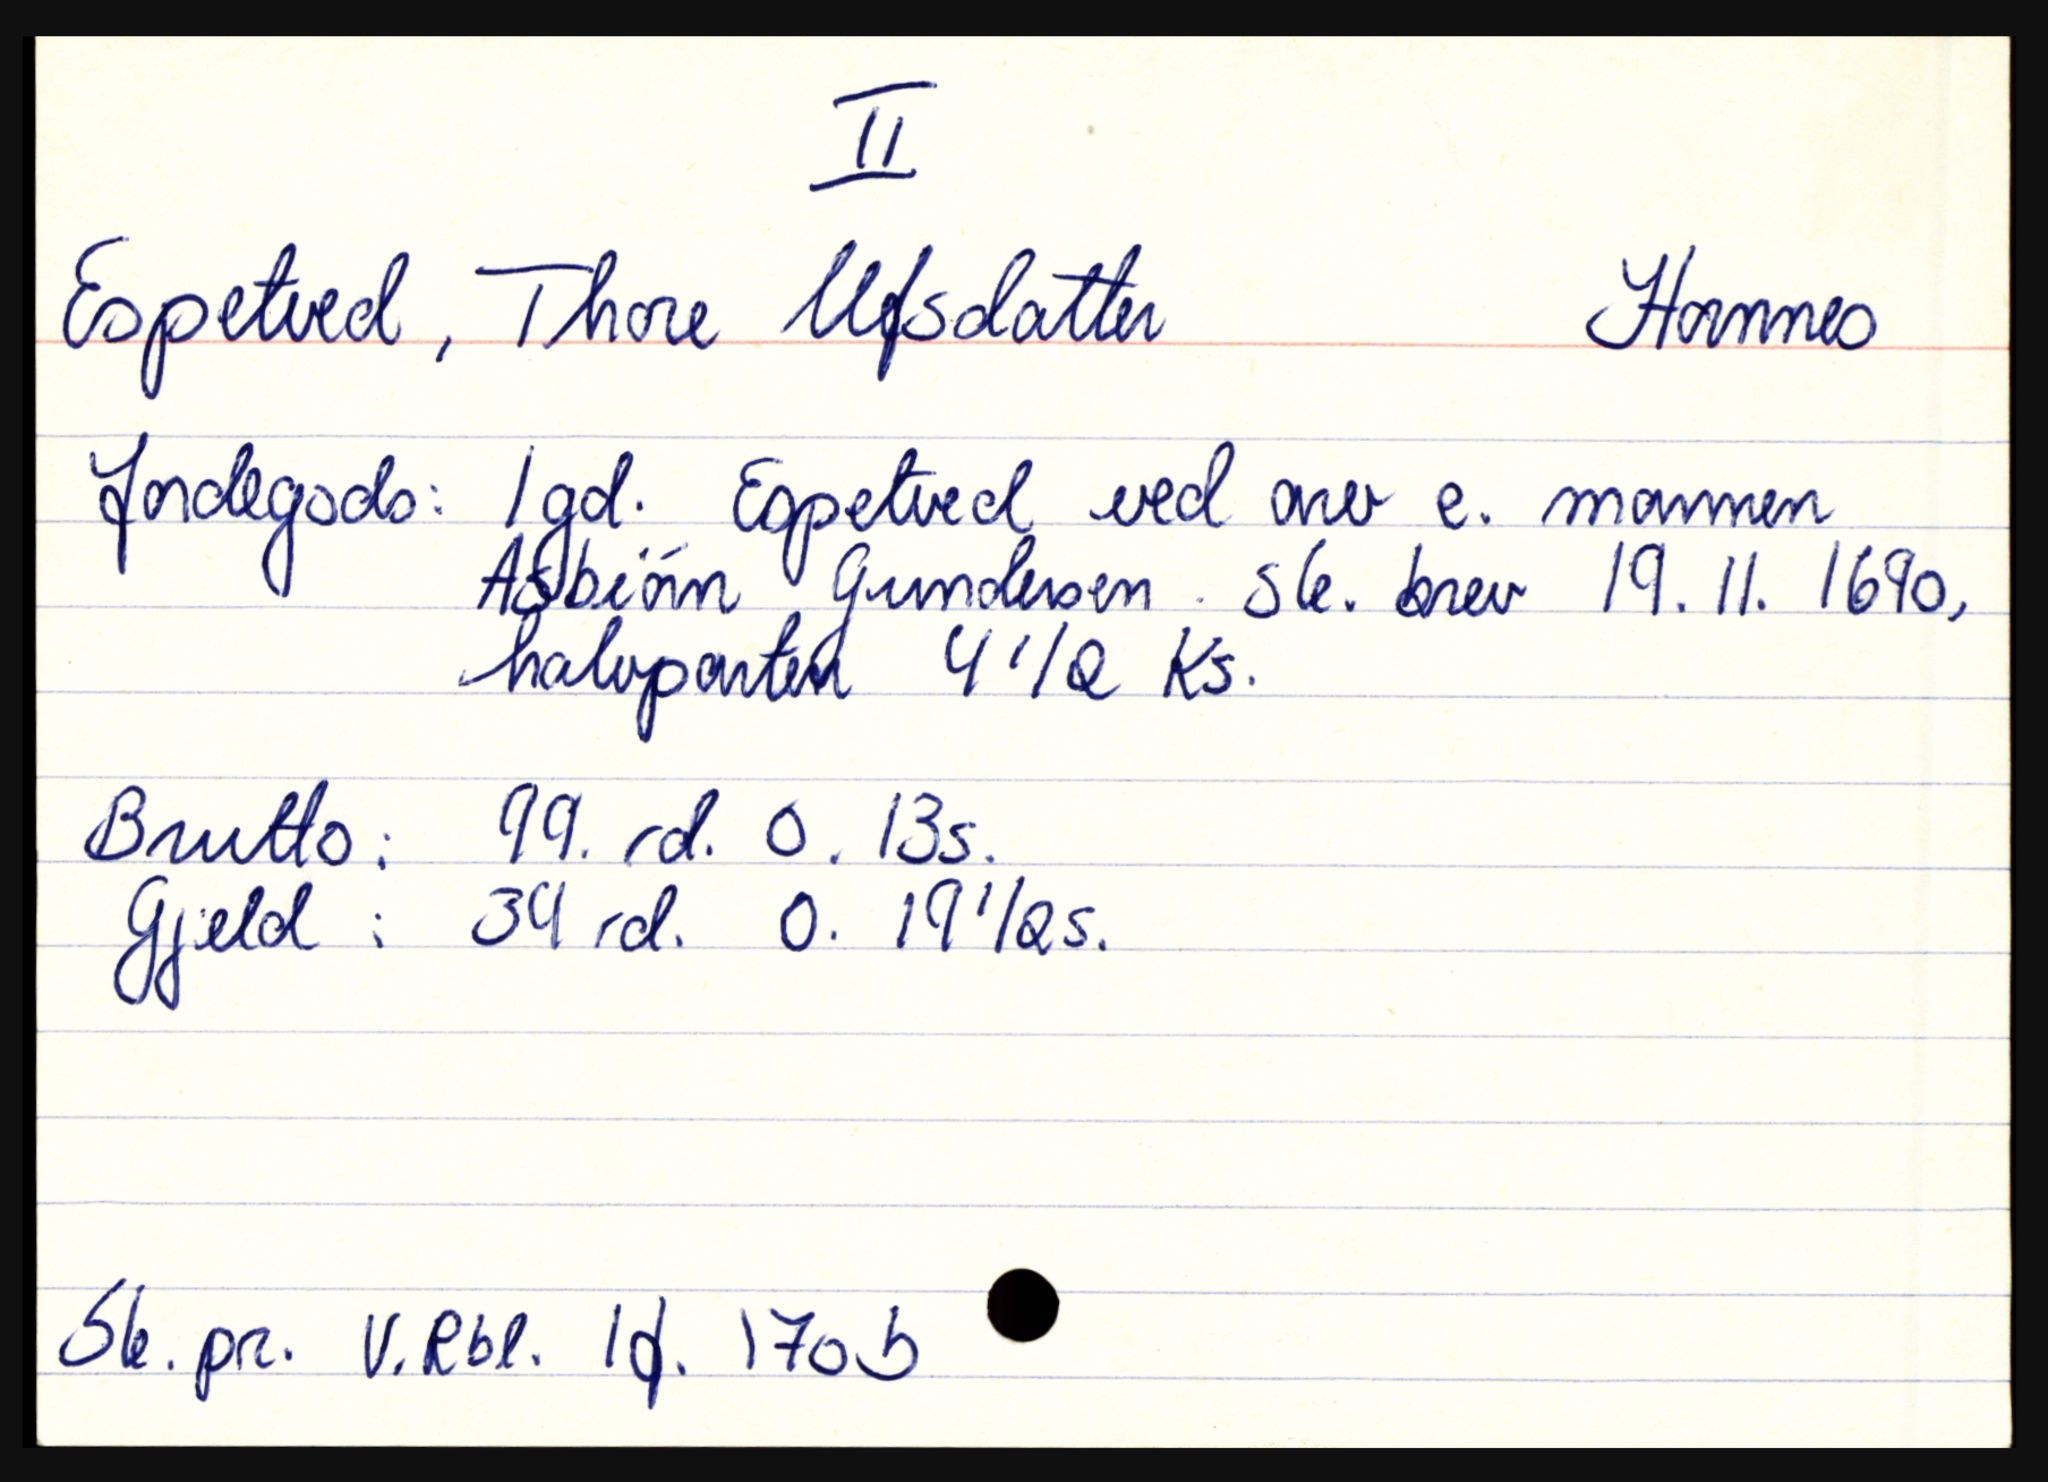 II
Espetved, Thore Ulfsdatter Hornnes
Jordegods: 1 gd. Espetved ved arv e. mannen
Asbiörn Gundersen. Sk. brev 19. 11. 1690,
halvparten 4 1/2 Ks.
Brutto: 99. rd. 0. 13s.
Gjeld: 34 rd. 0. 19 1/2 s.
Sk. pr. V. Rbl. 1 f. 170 b